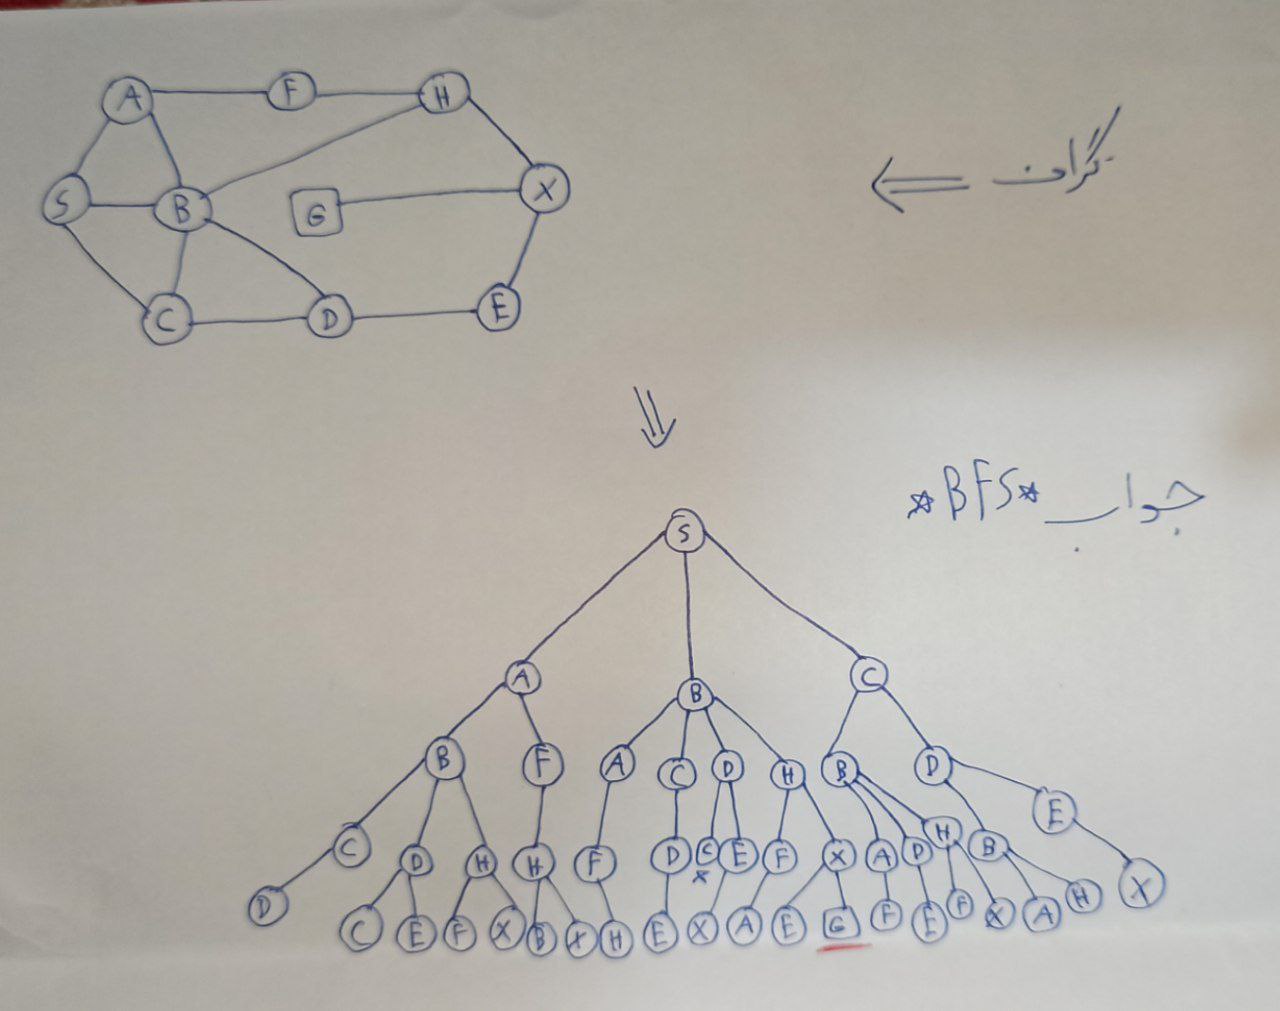 A F H
گراف
S B G X
C D E
جواب *BFS*
S
A B C
B F A C D H B D E
C D H H F D C E F X A D H B X
D C E F X B X H E X A E G F E F X A H